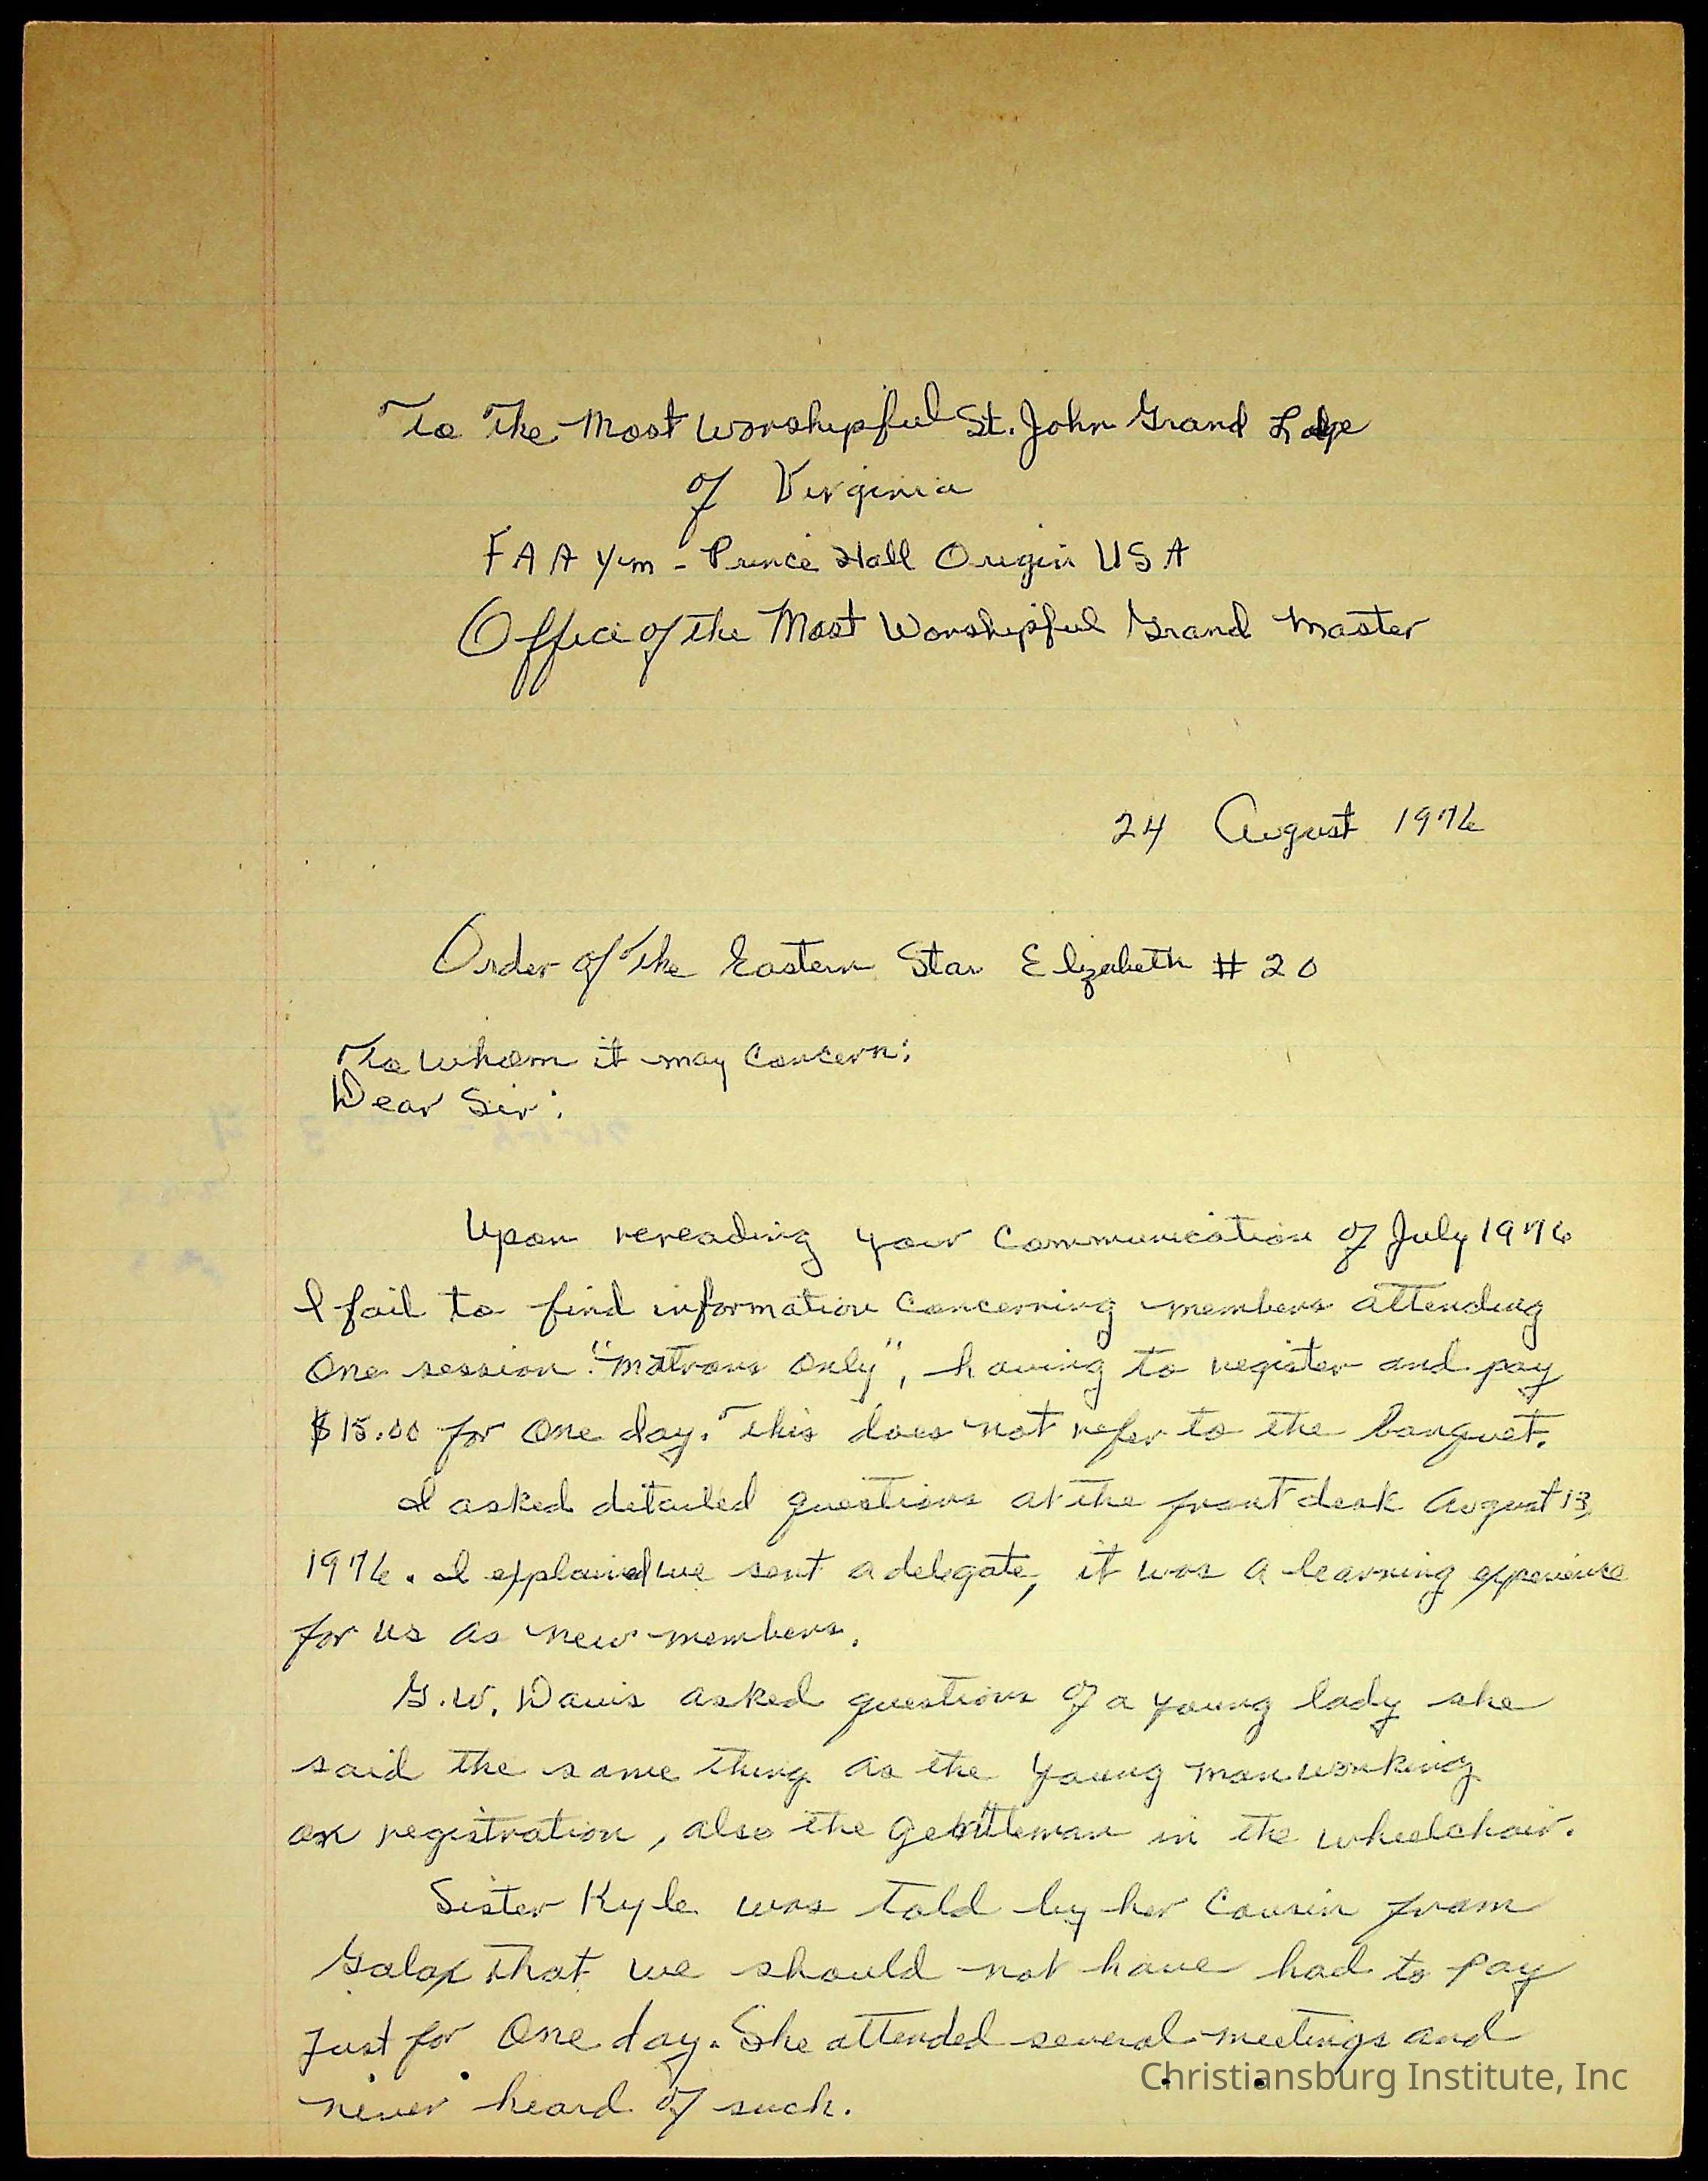 To The Most Worshipful St. John Grand Lodge
of Virginia
F A A Y M - Prince Hall Origin U S A
Office of the Most Worshipful Grand Master
24 August 1976
Order of The Eastern Star Elizabeth # 20
To Whom it may Concern:
Dear Sir:
Upon rereading your Communication of July 1976
I fail to find information Concerning members attending
One session "Matrons Only", having to register and pay
$15.00 for One day. This does not refer to the banquet.
I asked detailed questions at the front desk August 13,
1976. I explained we sent a delegate, it was a learning experience
for us as new members.
G.W. Davis asked questions of a young lady she
said the same thing as the young man working
on registration, also the gentleman in the wheelchair.
Sister Kyle was told by her Cousin from
Galax that we should not have had to pay
Just for One day. She attended several meetings and
never heard of such.
Christiansburg Institute, Inc